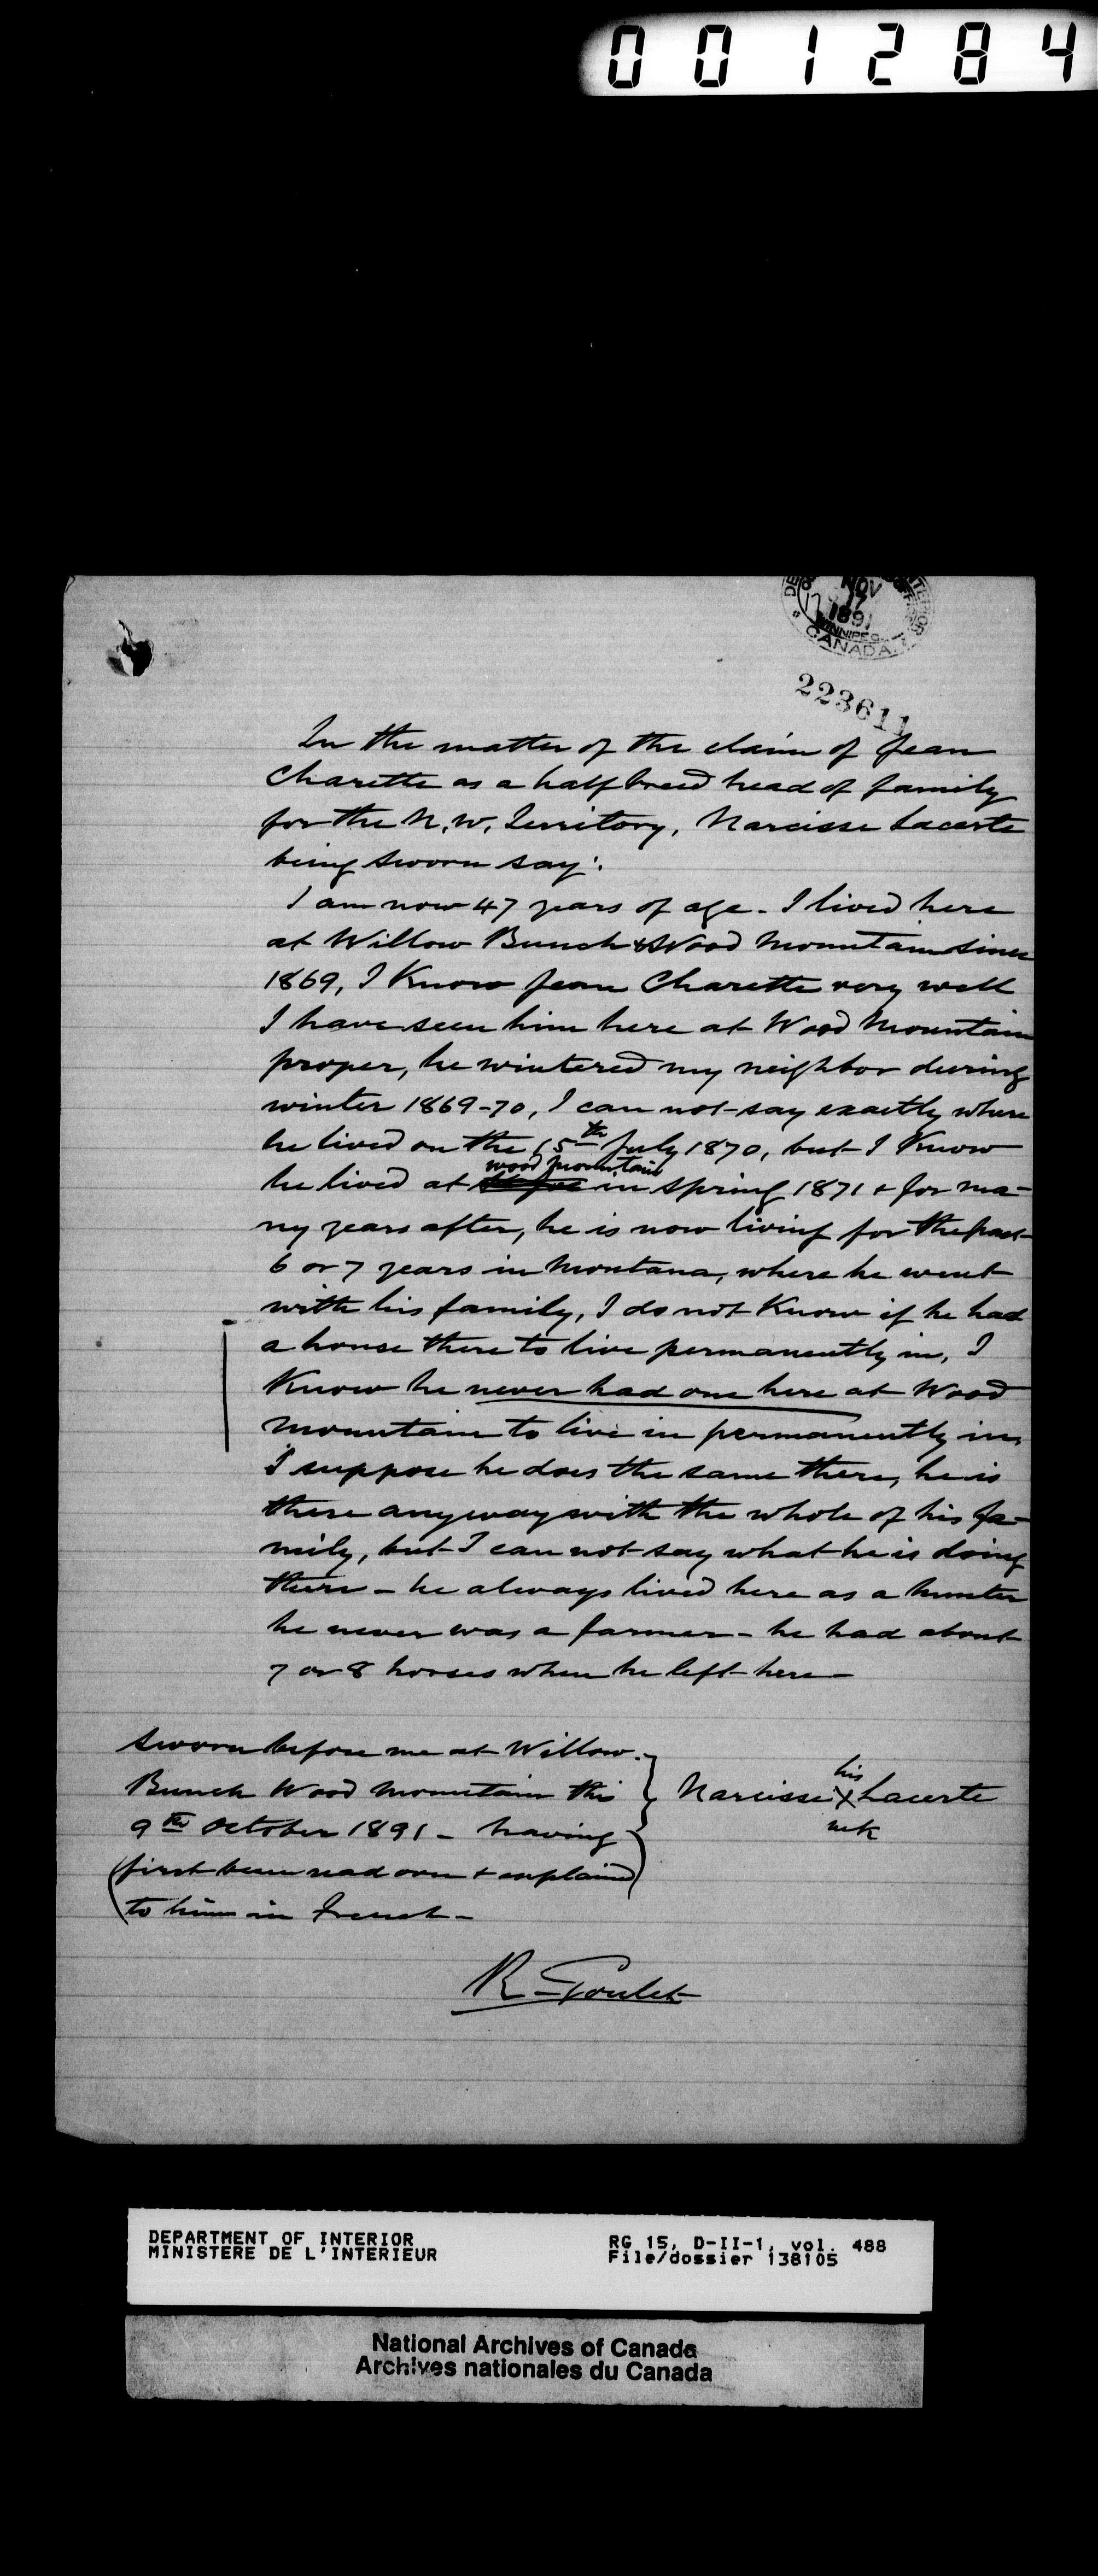 001284
NOV
17
1891
WINNIPEG
CANADA
223611
In the matter of the claim of Jean
Charette as a halfbreed head of family
for the N.W. Territory, Narcisse Lacerte
being sworn say:
I am now 47 years of age - I lived here
at Willow Bunch & Wood Mountain since
1869, I Know Jean Charette very well
I have seen him here at Wood Mountain
proper, he wintered my neighbor during
winter 1869-70, I can not say exactly where
he lived on the 15th July 1870, but I Know
wood mountain
he lived at in spring 1871 & for ma-
ny years after, he is now living for the past
6 or 7 years in Montana, where he went
with his family, I do not Know if he had
a house there to live permanently in, I
Know he never had one here at Wood
Mountain to live in permanently in,
I suppose he does the same there, he is
there anyway with the whole of his fa-
mily, but I can not say what he is doing
there - he always lived here as a hunter
he never was a farmer - he had about
7 or 8 horses when he left here -
Sworn before me at Willow
Bunch Wood Mountain this
9th October 1891 - having
(first been read over & explained)
to him in French -
his
Narcisse X Lacerte
mk
R. Goulet
DEPARTMENT OF INTERIOR
MINISTERE DE L'INTERIEUR
RG 15, D-II-1, vol. 488
File/dossier 138105
National Archives of Canada
Archives nationales du Canada